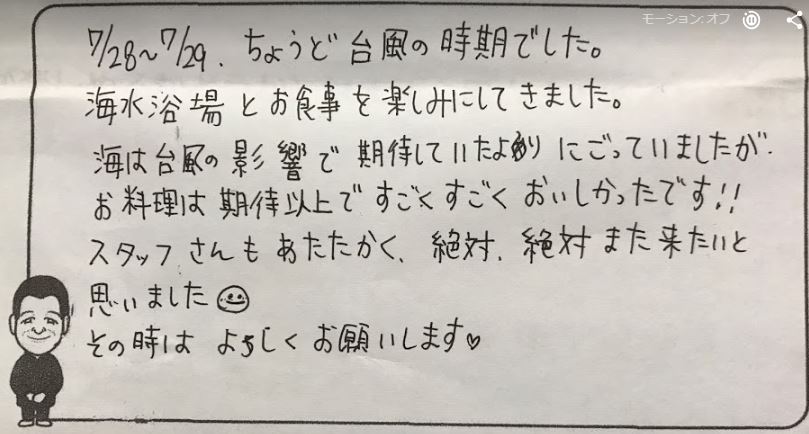 モーション: オフ
7/28～7/29、ちょうど台風の時期でした。
海水浴場とお食事を楽しみにしてきました。
海は台風の影響で期待していたよりにごっていましたが、
お料理は期待以上ですごくすごくおいしかったです!!
スタッフさんもあたたかく、絶対、絶対また来たいと
思いました☺
その時はよろしくお願いします♡